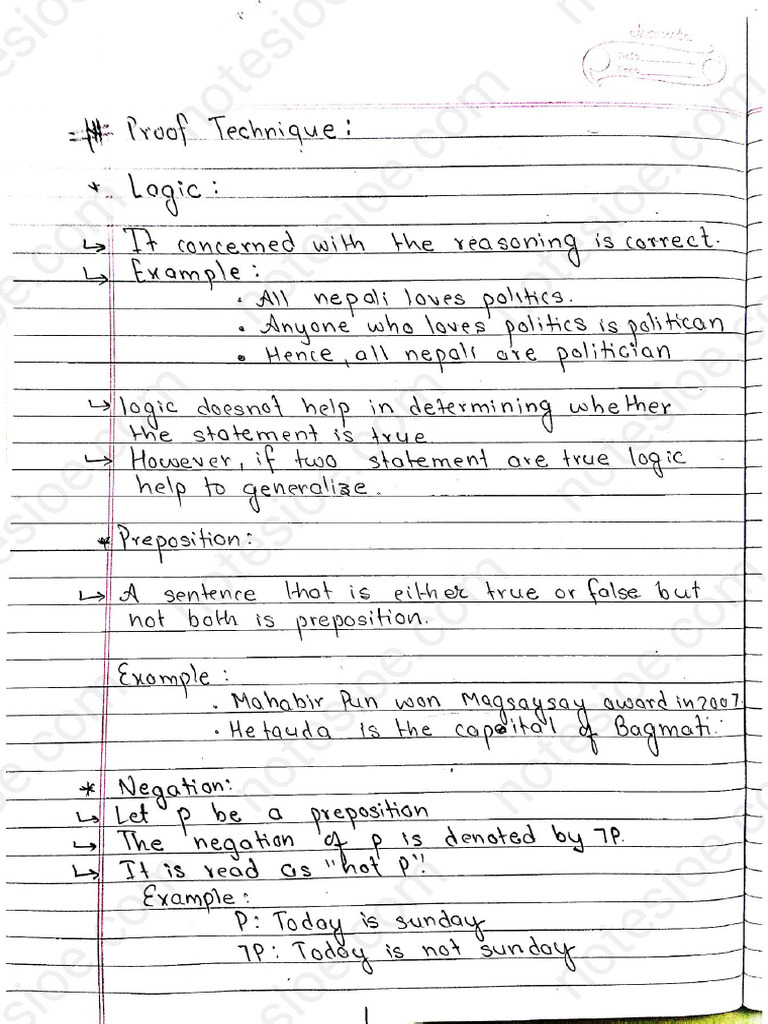 # Proof Technique:
* Logic:
↳ It concerned with the reasoning is correct.
↳ Example:
• All nepali loves politics.
• Anyone who loves politics is politican
• Hence, all nepali are politician
↳ logic doesnot help in determining whether
the statement is true
↳ However, if two statement are true logic
help to generalize.
* Preposition:
↳ A sentence that is either true or false but
not both is preposition.
Example:
• Mahabir Pun won Magsaysay award in 2007.
• Hetauda is the capoital of Bagmati.
* Negation:
↳ Let p be a preposition
↳ The negation of p is denoted by ¬P.
↳ It is read as "not P".
Example:
P: Today is sunday
¬P: Today is not sunday
1
notesioe.com